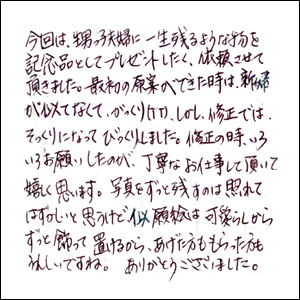 今回は、甥っ子夫婦に一生残るような物を
記念品としてプレゼントしたく、依頼させて
頂きました。最初の原案ができた時は、新婦
が似てなくて、がっくり(TT)、しかし、修正では、
そっくりになってびっくりしました。修正の時、いろ
いろお願いしたのが、丁寧なお仕事して頂いて
嬉しく思います。写真をずっと残すのは照れて
はずかしいと思うけど似顔絵は可愛らしから
ずっと飾って置けるから、あげた方ももらった方も
うれしいですね。ありがとうございました。